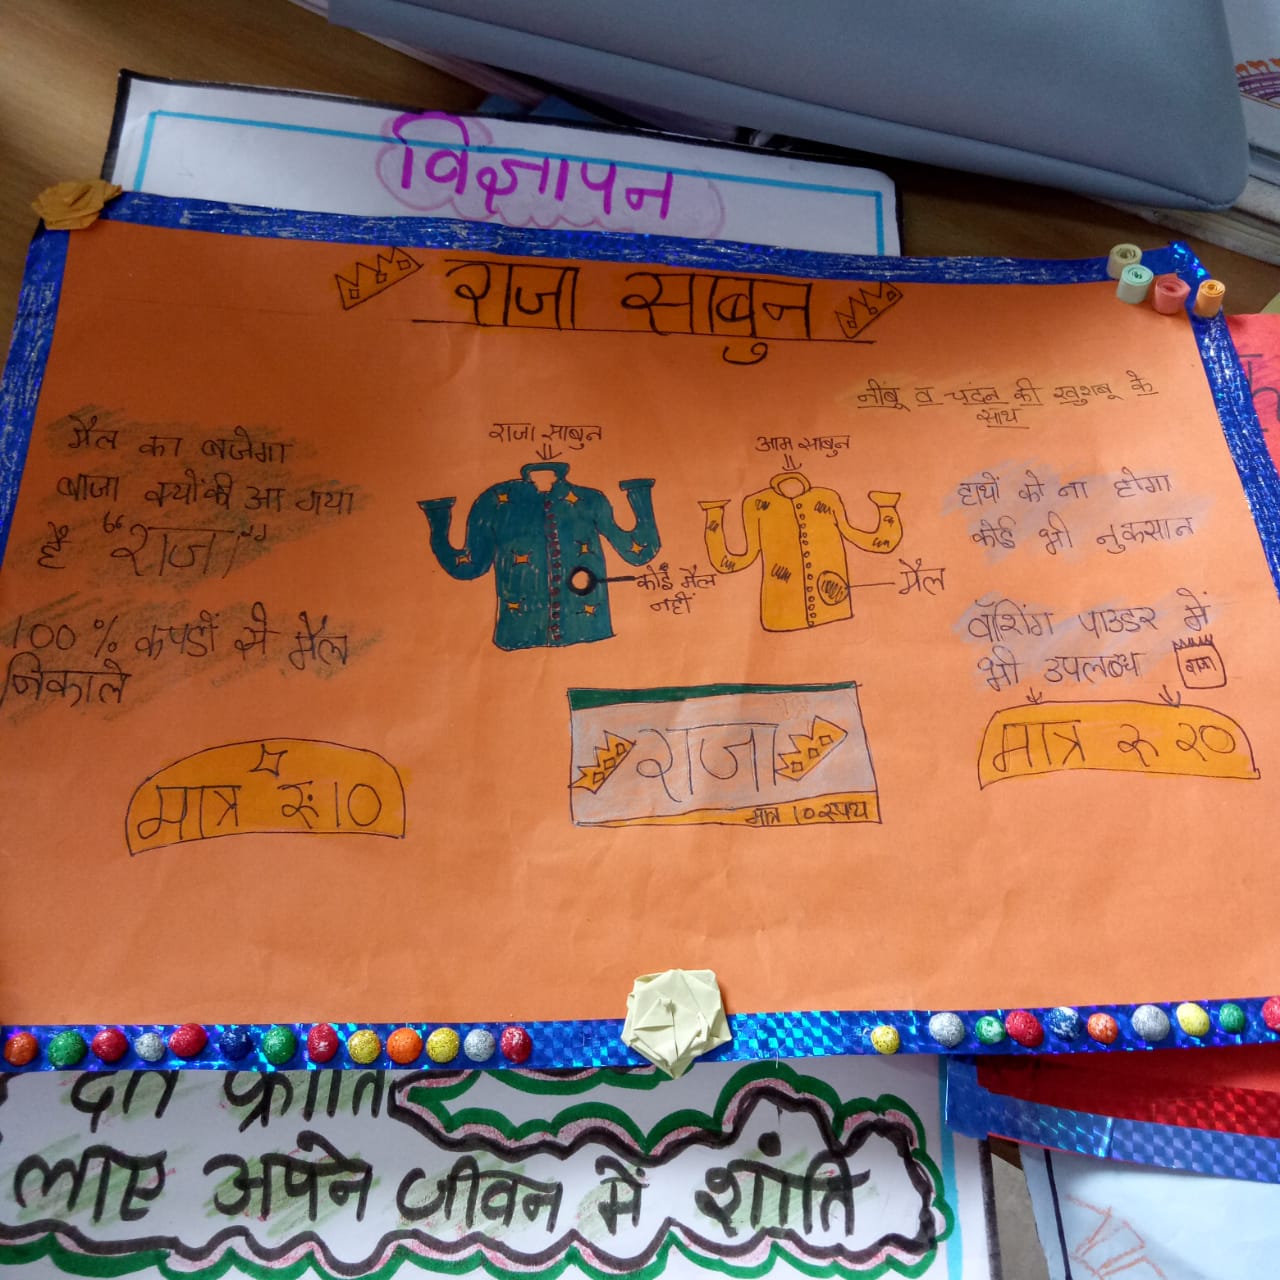 विज्ञापन
राजा साबुन
नींबू व चंदन की खुशबू के
साथ
मैल का बजेगा
बाजा क्योंकी आ गया
है "राजा"
100 % कपडों से मैल
निकाले
मात्र रु 10
राजा साबुन
कोई मैल
नहीं
आम साबुन
मैल
राजा
मात्र 10 रुपय
हाथों को ना होगा
कोई भी नुकसान
वॉशिंग पाउडर में
भी उपलब्ध
राजा
मात्र रु २०
दंत क्रांति
लाए अपने जीवन में शांति